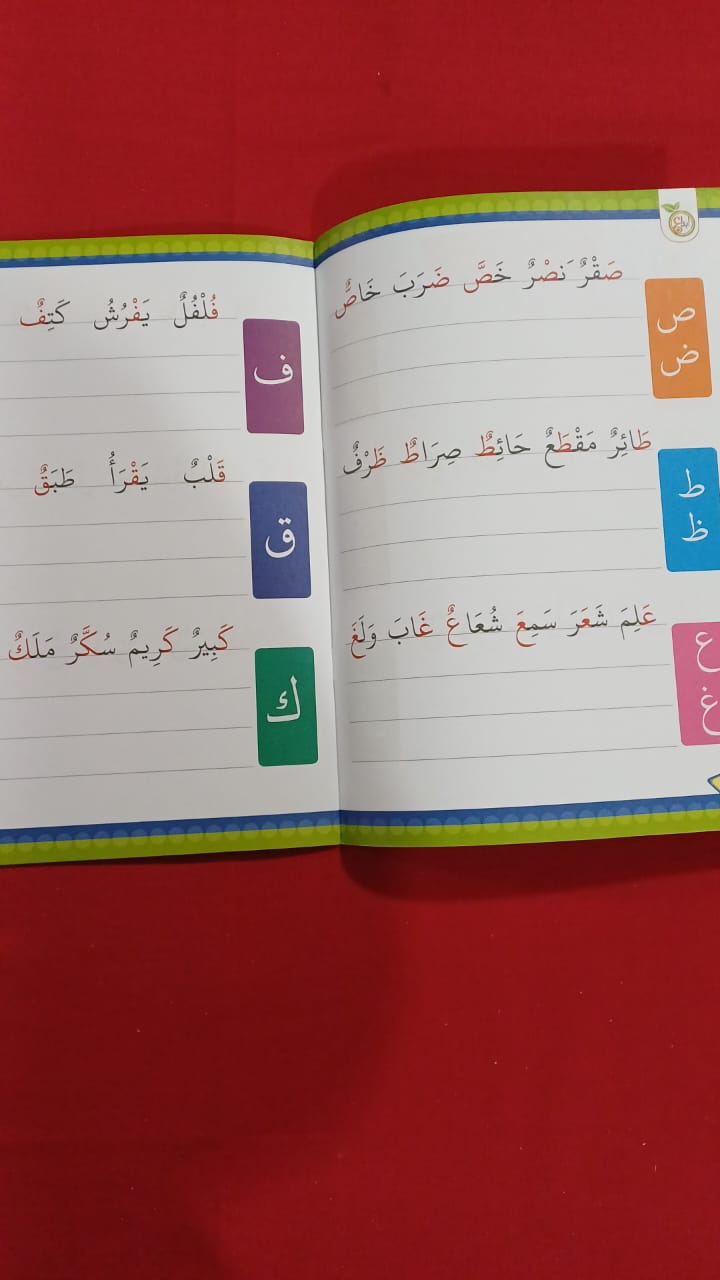 ص
ض
صَقْرٌ نَصْرٌ خَصَّ ضَرَبَ خَاصٌ
ط
ظ
طَائِرٌ مَقْطَعٌ حَائِطٌ صِرَاطٌ ظَرْفٌ
ع
غ
عَلِمَ شَعَرَ سَمِعَ شُعَاعٌ غَابَ وَلَغَ
ف
فُلْفُلٌ يَفْرُشُ كَتِفٌ
ق
قَلْبٌ يَقْرَأُ طَبَقٌ
ك
كَبِيرٌ كَرِيمٌ سُكَّرٌ مَلَكٌ